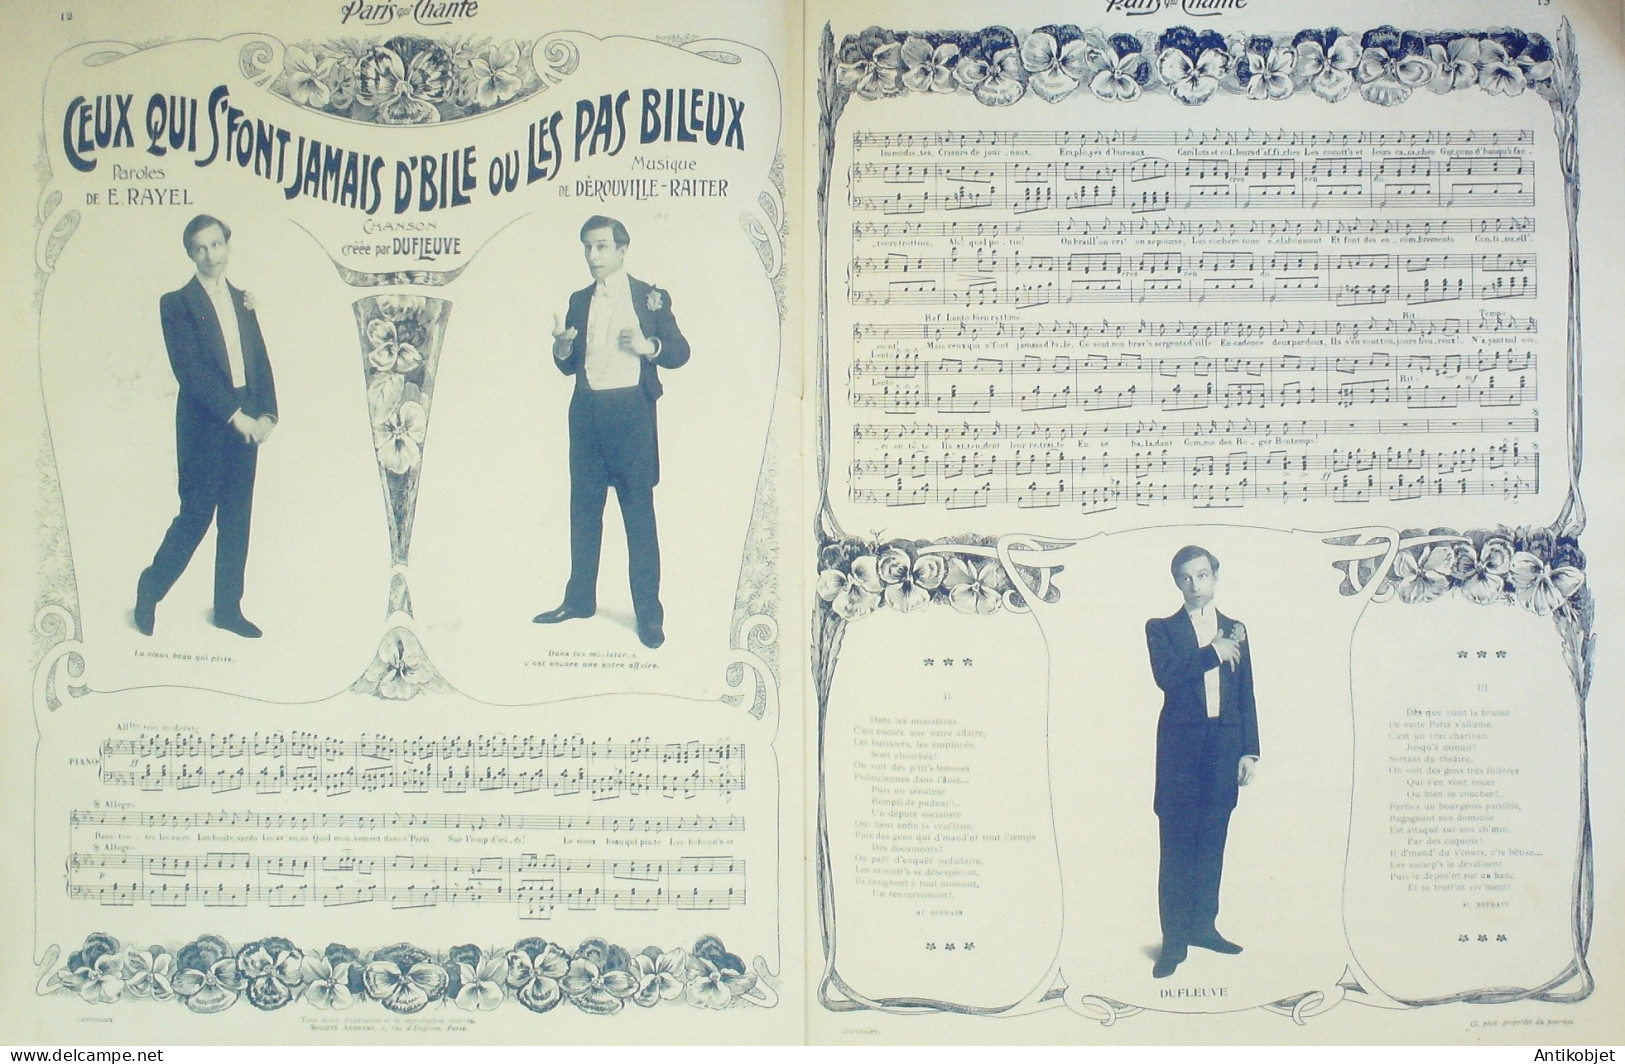 12
Paris qui Chante
CEUX QUI S'FONT JAMAIS D'BILE OU LES PAS BILEUX
Paroles
DE E. RAYEL
Musique
DE DÉROUVILLE-RAITER
CHANSON
créée par DUFLEUVE
Le vieux beau qui piste.
Dans les ministères
c'est encore une autre affaire.
PIANO
Allegro
Dans tou - tes les rues Les boule - vards les av' - nues Quel mou - vement dans c' Paris Sur l' coup d' mi - di! Le vieux beau qui piste Les
Allegro
COPYRIGHT.
SOCIÉTÉ ANONYME, 2, rue d'Enghien, Paris.
Paris qui Chante
13
les modis - tes, Crieurs de jour - naux, Em - plo - yés d' bureaux Cam'lots et col - leurs d'af - fi - ches Les cocott's et leurs ca - ni - ches Gar - çons d' banqu's fac -
cres cen do
teurs trottins, Ah! quel po - tin! On braill' on cri' on se pousse, Les cochers vous é - claboussent Et font des en - com - brements Con - ti - nu - ell' -
cres cen do
Ref - Lento bien rythmé Rit. Tempo
ment! Mais ceux qui s' font jamais d' bile, Ce sont nos brav's sergents d' ville En cadence deux par deux, Ils s'en vont tou - jours heu - reux! N'a - yant nul sou -
Lento
Lento
Rit. mf
ci en tê - te Ils at - ten - dent leur re - trai - te En se ba - la - dant Com - me des Ro - ger Bontemps!
ff
II
Dans les ministères
C'est encore une autre affaire,
Les huissiers, les employés,
Sont absorbés!
On voit des p'tit's femmes
Politiciennes dans l'âme...
Puis un sénateur
Rempli de pudeur!..
Un député socialiste
Qui tient enfin la vrai' liste,
Puis des gens qui d'mand'nt tout l'temps
Des documents!
On parl' d'enquêt' judiciaire,
Les ministr's se désespèrent,
Ils craignent à tout moment,
Un renversement!
AU REFRAIN
DUFLEUVE
III
Dès que vient la brume
De suite Paris s'allume,
C'est un vrai charivari
Jusqu'à minuit!
Sortant du théâtre,
On voit des gens très folâtres
Qui s'en vont nocer
Ou bien se coucher!..
Parfois un bourgeois paisible,
Regagnant son domicile
Est attaqué sur son ch'min,
Par des coquins!
Il d'mand' du s'cours, c'te bêtise...
Les escarp's le dévalisent
Puis le depos'nt sur un banc
Et se trott'nt viv'ment!
AU REFRAIN
COPYRIGHT.
Cl. phot. propriété du journal.
Antikobjet su Delcampe.net